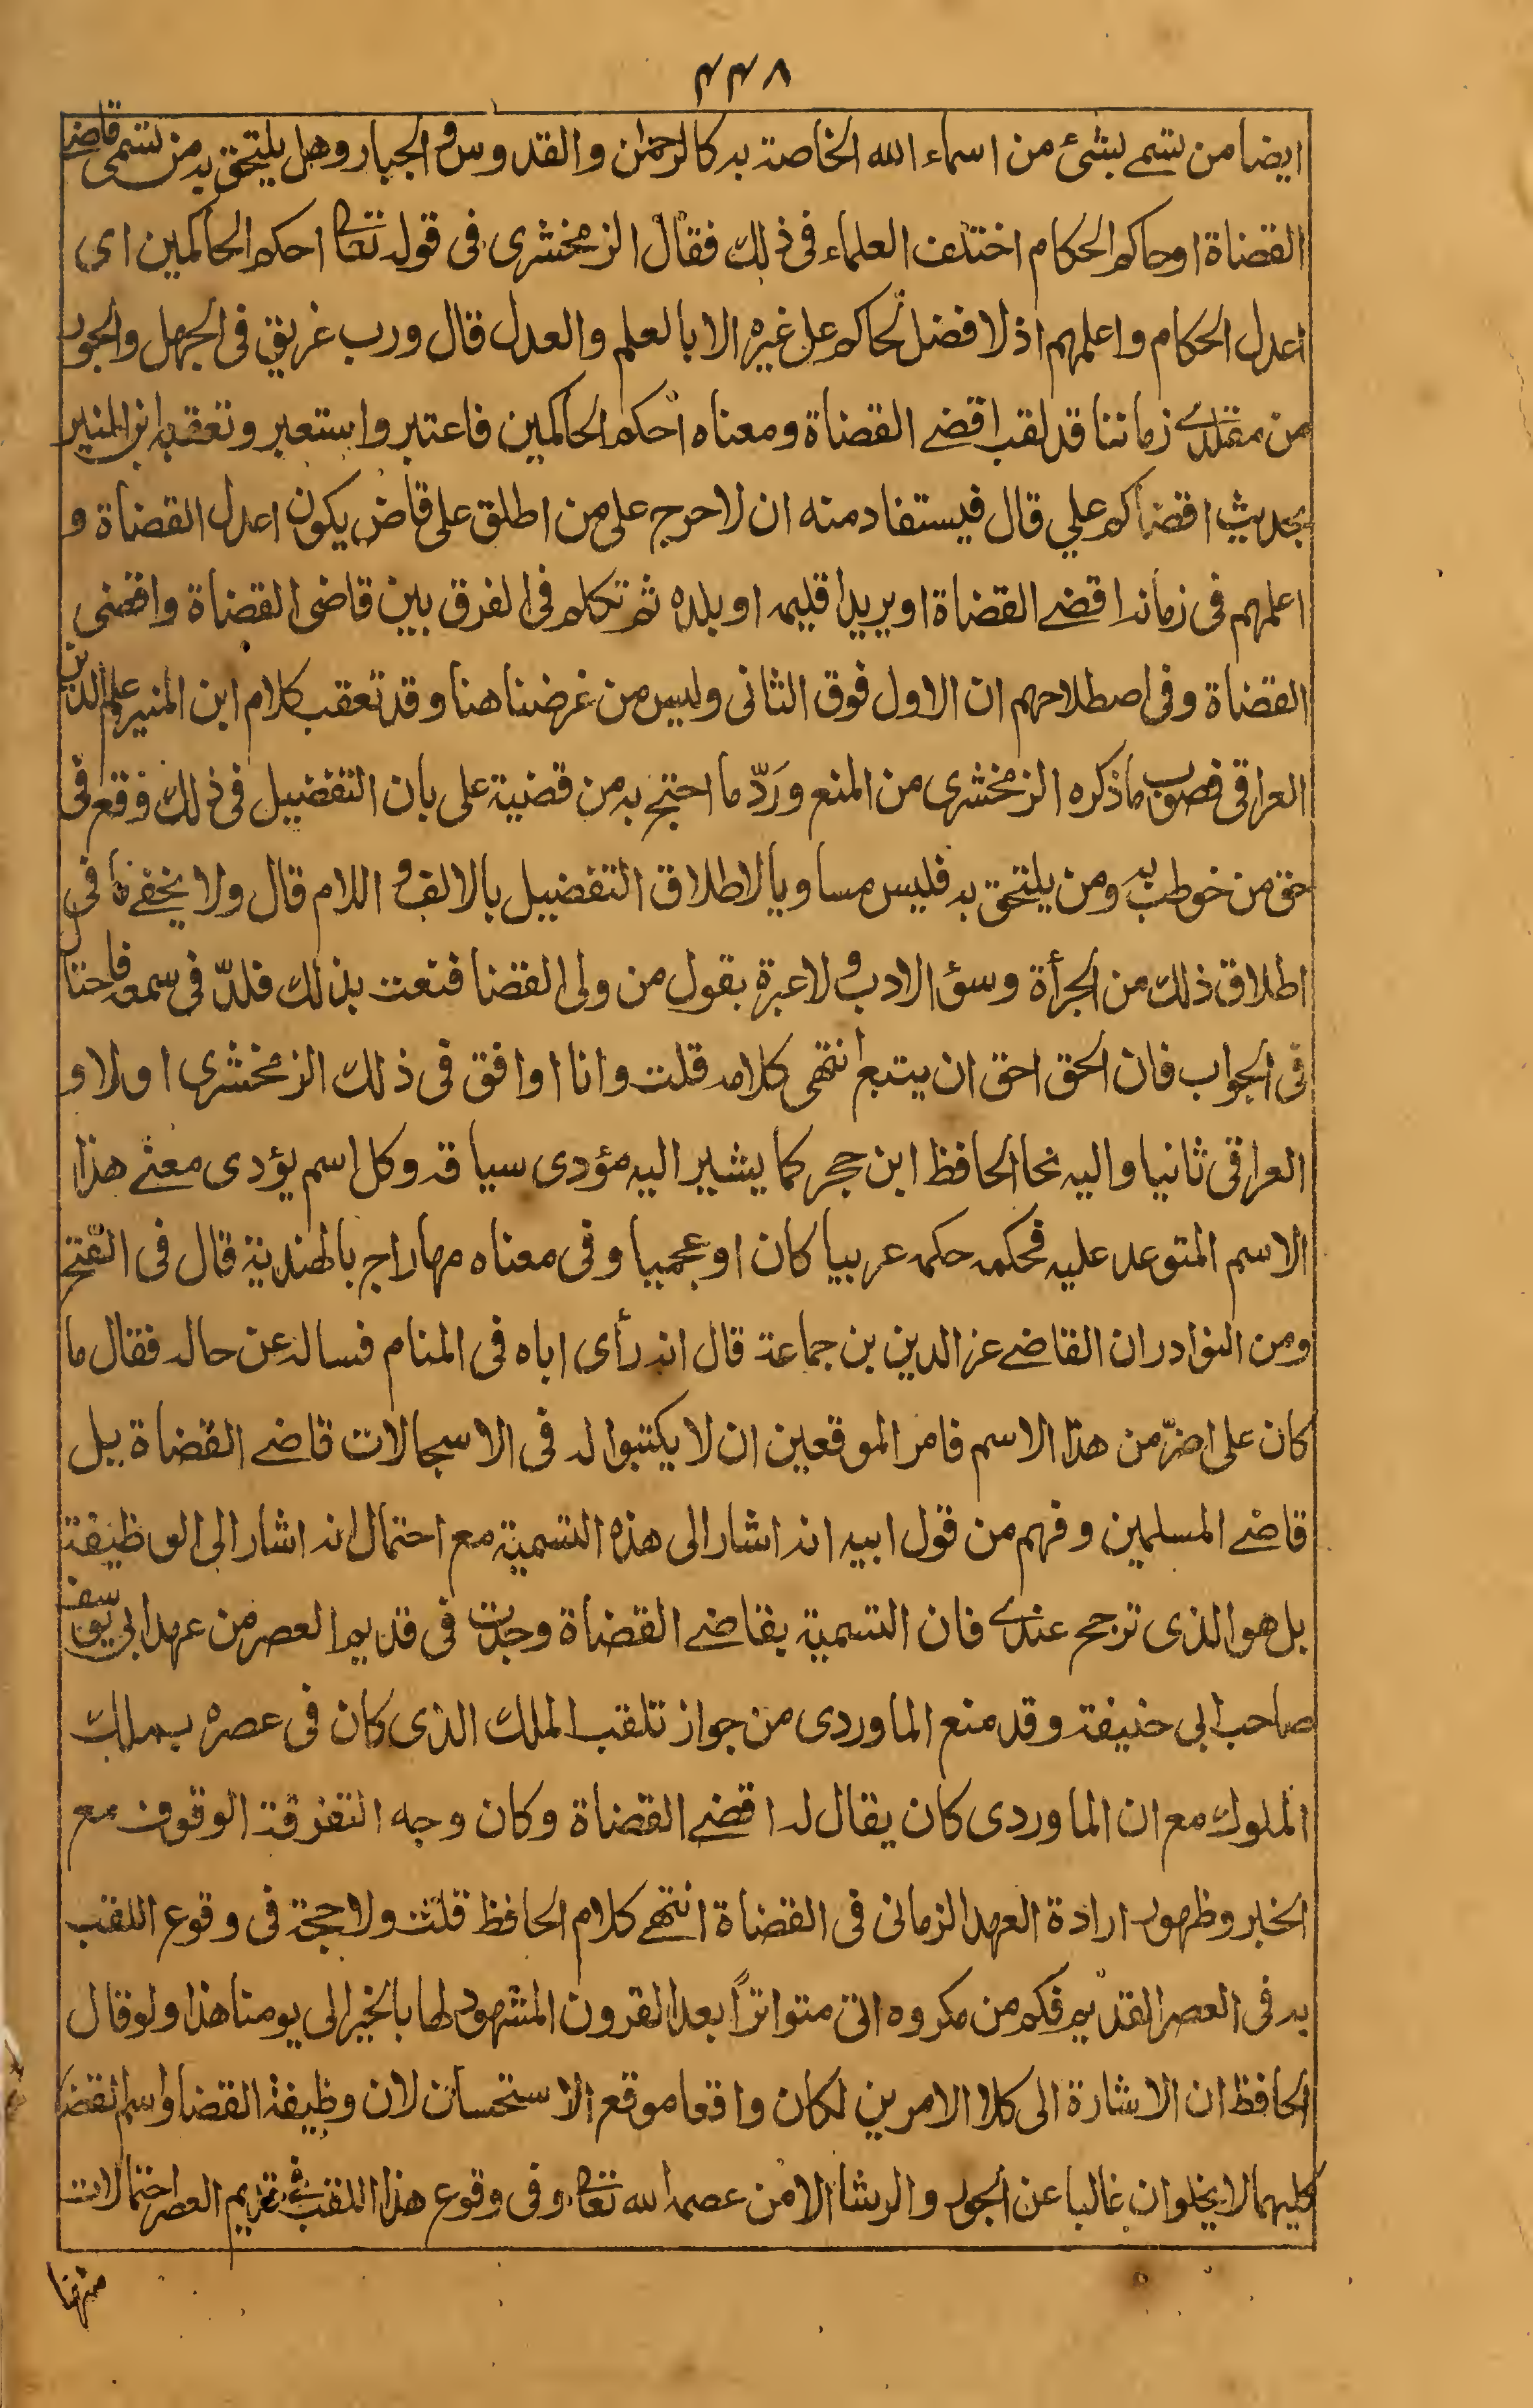 ۴۴۸
ايضا من تسمے بشئ من اسماء الله الخاصة به كالرحمٰن والقدوس والجبار وهل يلتحق به من تسمى قاضے
القضاة او حاكم الحكام اختلف العلماء فى ذلك فقال الزمخشرى فى قوله تعا احكم الحاكمين اى
اعدل الحكام واعلمهم اذ لا فضل لحاكم على غيره الا بالعلم والعدل قال ورب غريق فى الجهل والجور
من مقلدے زماننا قد لقب اقضے القضاة ومعناه احكم الحاكمين فاعتبر واستعبر وتعقبه ابن المنير
بحديث اقضاكم علي قال فيستفاد منه ان لا حرج على من اطلق على قاض يكون اعدل القضاة و
اعلمهم فى زمانه اقضے القضاة او يريد اقليمه او بلده ثم تكلم فى الفرق بين قاضى القضاة واقضى
القضاة وفى اصطلاحهم ان الاول فوق الثانى وليس من غرضنا هنا وقد تعقب كلام ابن المنير علم الدين
العراقى فصوب ما ذكره الزمخشرى من المنع وَرَدّ ما احتج به من قضية على بان التفضيل فى ذلك وقع فى
حق من خوطب به ومن يلتحق به فليس مساويا لاطلاق التفضيل بالالف واللام قال ولا يخفے ما فى
اطلاق ذلك من الجرأة وسئ الادب ولا عبرة بقول من ولى القضا فنعت بذلك فلذّ فى سمعه فاحتا
فى الجواب فان الحق احق ان يتبع انتهى كلامه قلت وانا اوافق فى ذلك الزمخشرى اولا و
العراقى ثانيا واليه نحا الحافظ ابن حجر كما يشير اليه مؤدى سياقه وكل اسم يؤدى معنے هذا
الاسم المتوعد عليه فحكمه حكمه عربيا كان او عجميا وفى معناه مهاراجر بالهندية قال فى الفتح
ومن النوادر ان القاضے عز الدين بن جماعة قال انه رأى اباه فى المنام فساله عن حاله فقال ما
كان على اضرّ من هذا الاسم فامر الموقعين ان لا يكتبوا له فى الاسجالات قاضے القضاة بل
قاضے المسلمين وفهم من قول ابيه انه اشار الى هذه التسمية مع احتمال انه اشار الى الوظيفة
بل هو الذى ترجح عندے فان التسمية بقاضے القضاة وجدت فى قديم العصر من عهد ابى يوسف
صاحب ابى حنيفة وقد منع الماوردى من جواز تلقب الملك الذى كان فى عصره بملك
الملوك مع ان الماوردى كان يقال له اقضے القضاة وكان وجه التفرقة الوقوف مع
الخبر وظهور ارادة العهد الزمانى فى القضاة انتهے كلام الحافظ قلت ولا حجة فى وقوع اللقب
به فى العصر القديم فكم من مكروه اتى متواترًا بعد القرون المشهود لها بالخير الى يومنا هذا ولو قال
الحافظ ان الاشارة الى كلا الامرين لكان واقعا موقع الاستحسان لان وظيفة القضا واسم القضا
كليهما لا يخلوان غالبا عن الجور والرشا الا من عصمه الله تعا وفى وقوع هذا اللقب فى قديم العصر احتمالات
منها